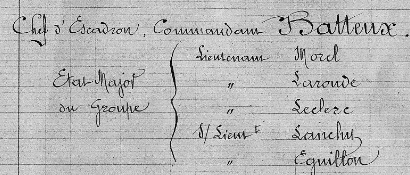 Chef d'Escadron, Commandant Batteux.
Lieutenant Morel
Etat-Major „ Laronde
du Groupe „ Leclerc
S/Lieutt Lanchy
„ Equillon